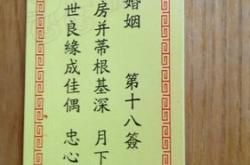 婚姻　第十八簽
房并蒂根基深　月下
世良緣成佳偶　忠心